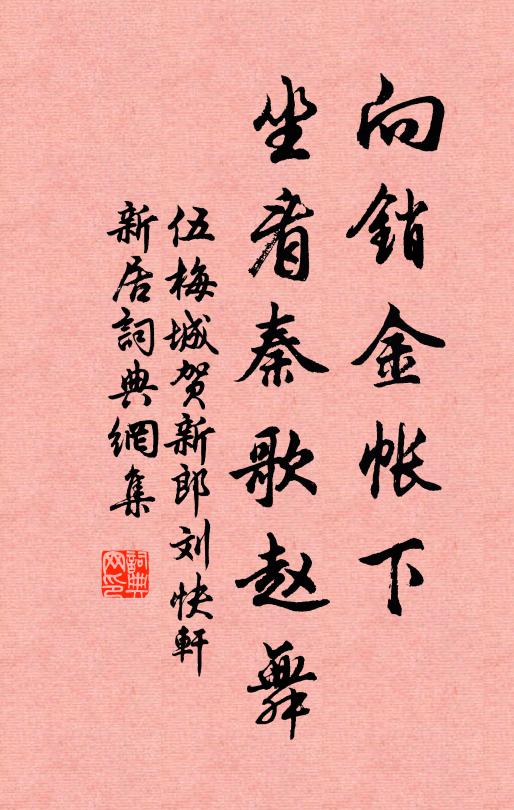 向銷金帐下
坐看秦歌赵舞
伍梅城贺新郎刘快軒
新居詞典網集
詞典
网印